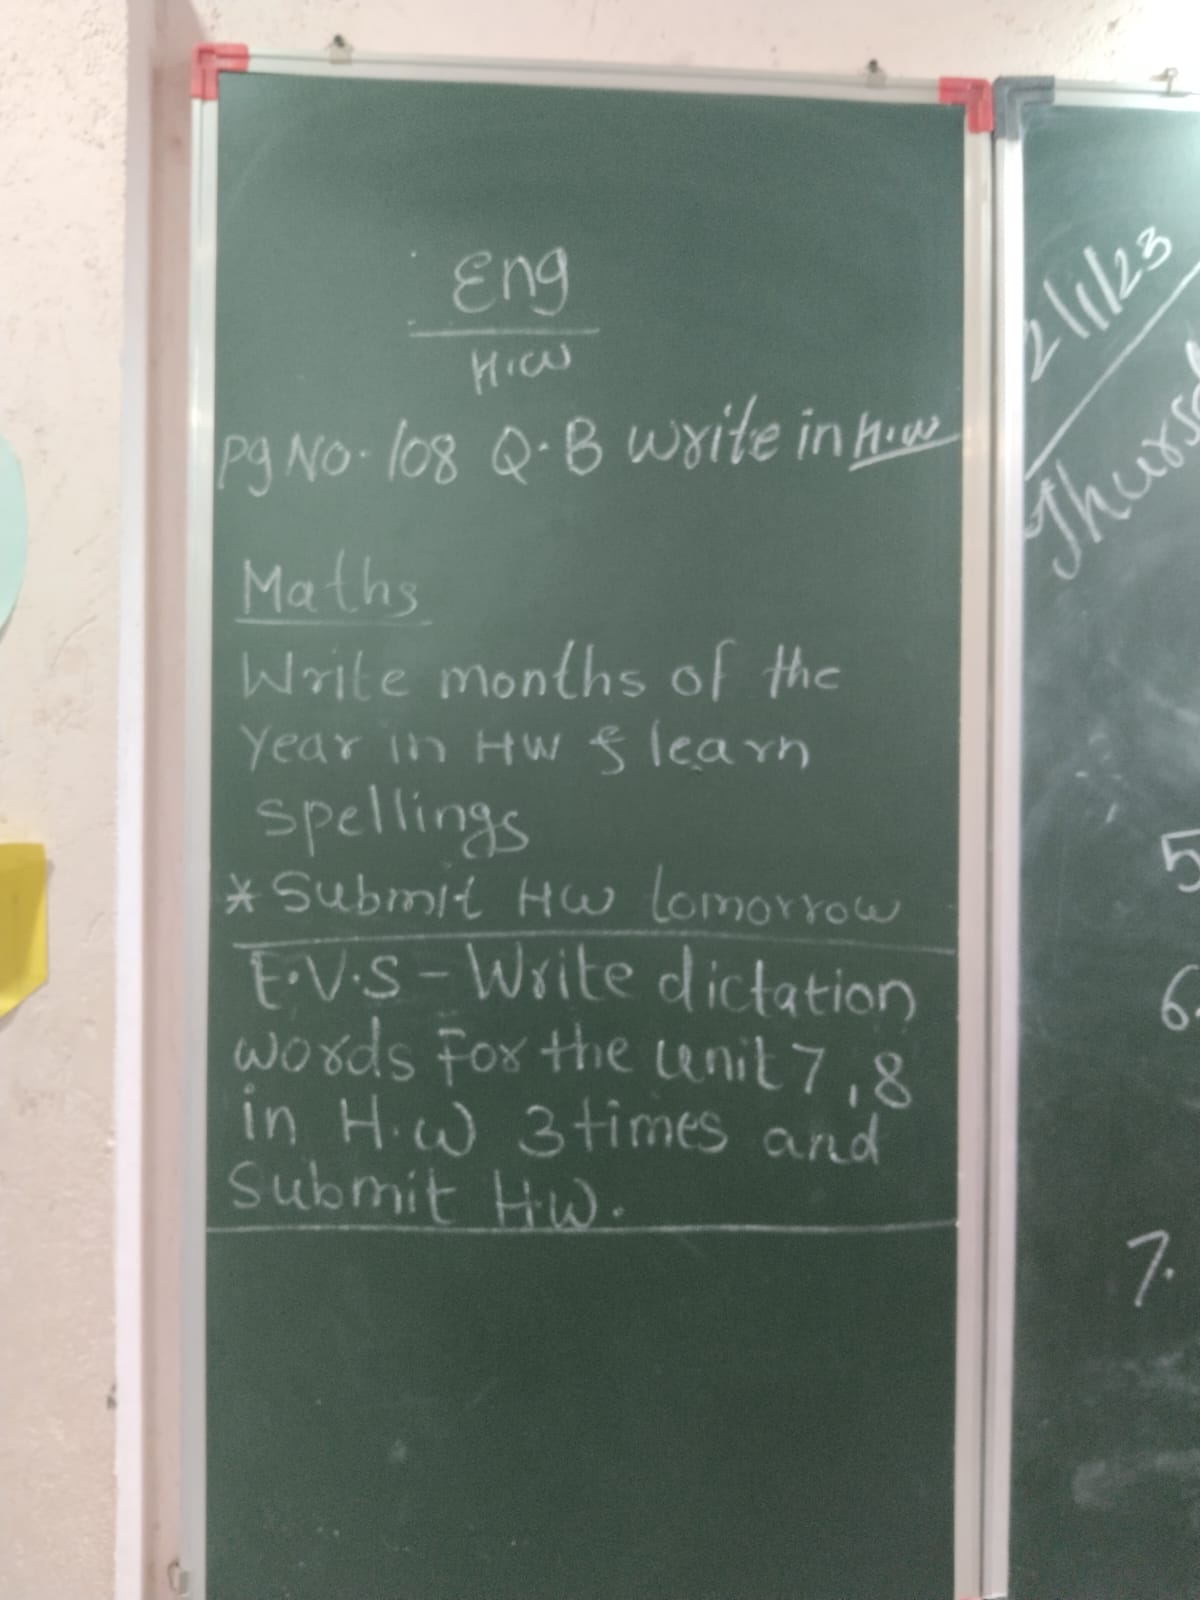 Eng
H.W
Pg No. 108 Q.B Write in H.W
Maths
Write months of the
year in HW & learn
spellings
* Submit HW tomorrow
E.V.S - Write dictation
words For the unit 7, 8
in H.W 3 times and
Submit H.W.
2/1/23
5
6.
7.